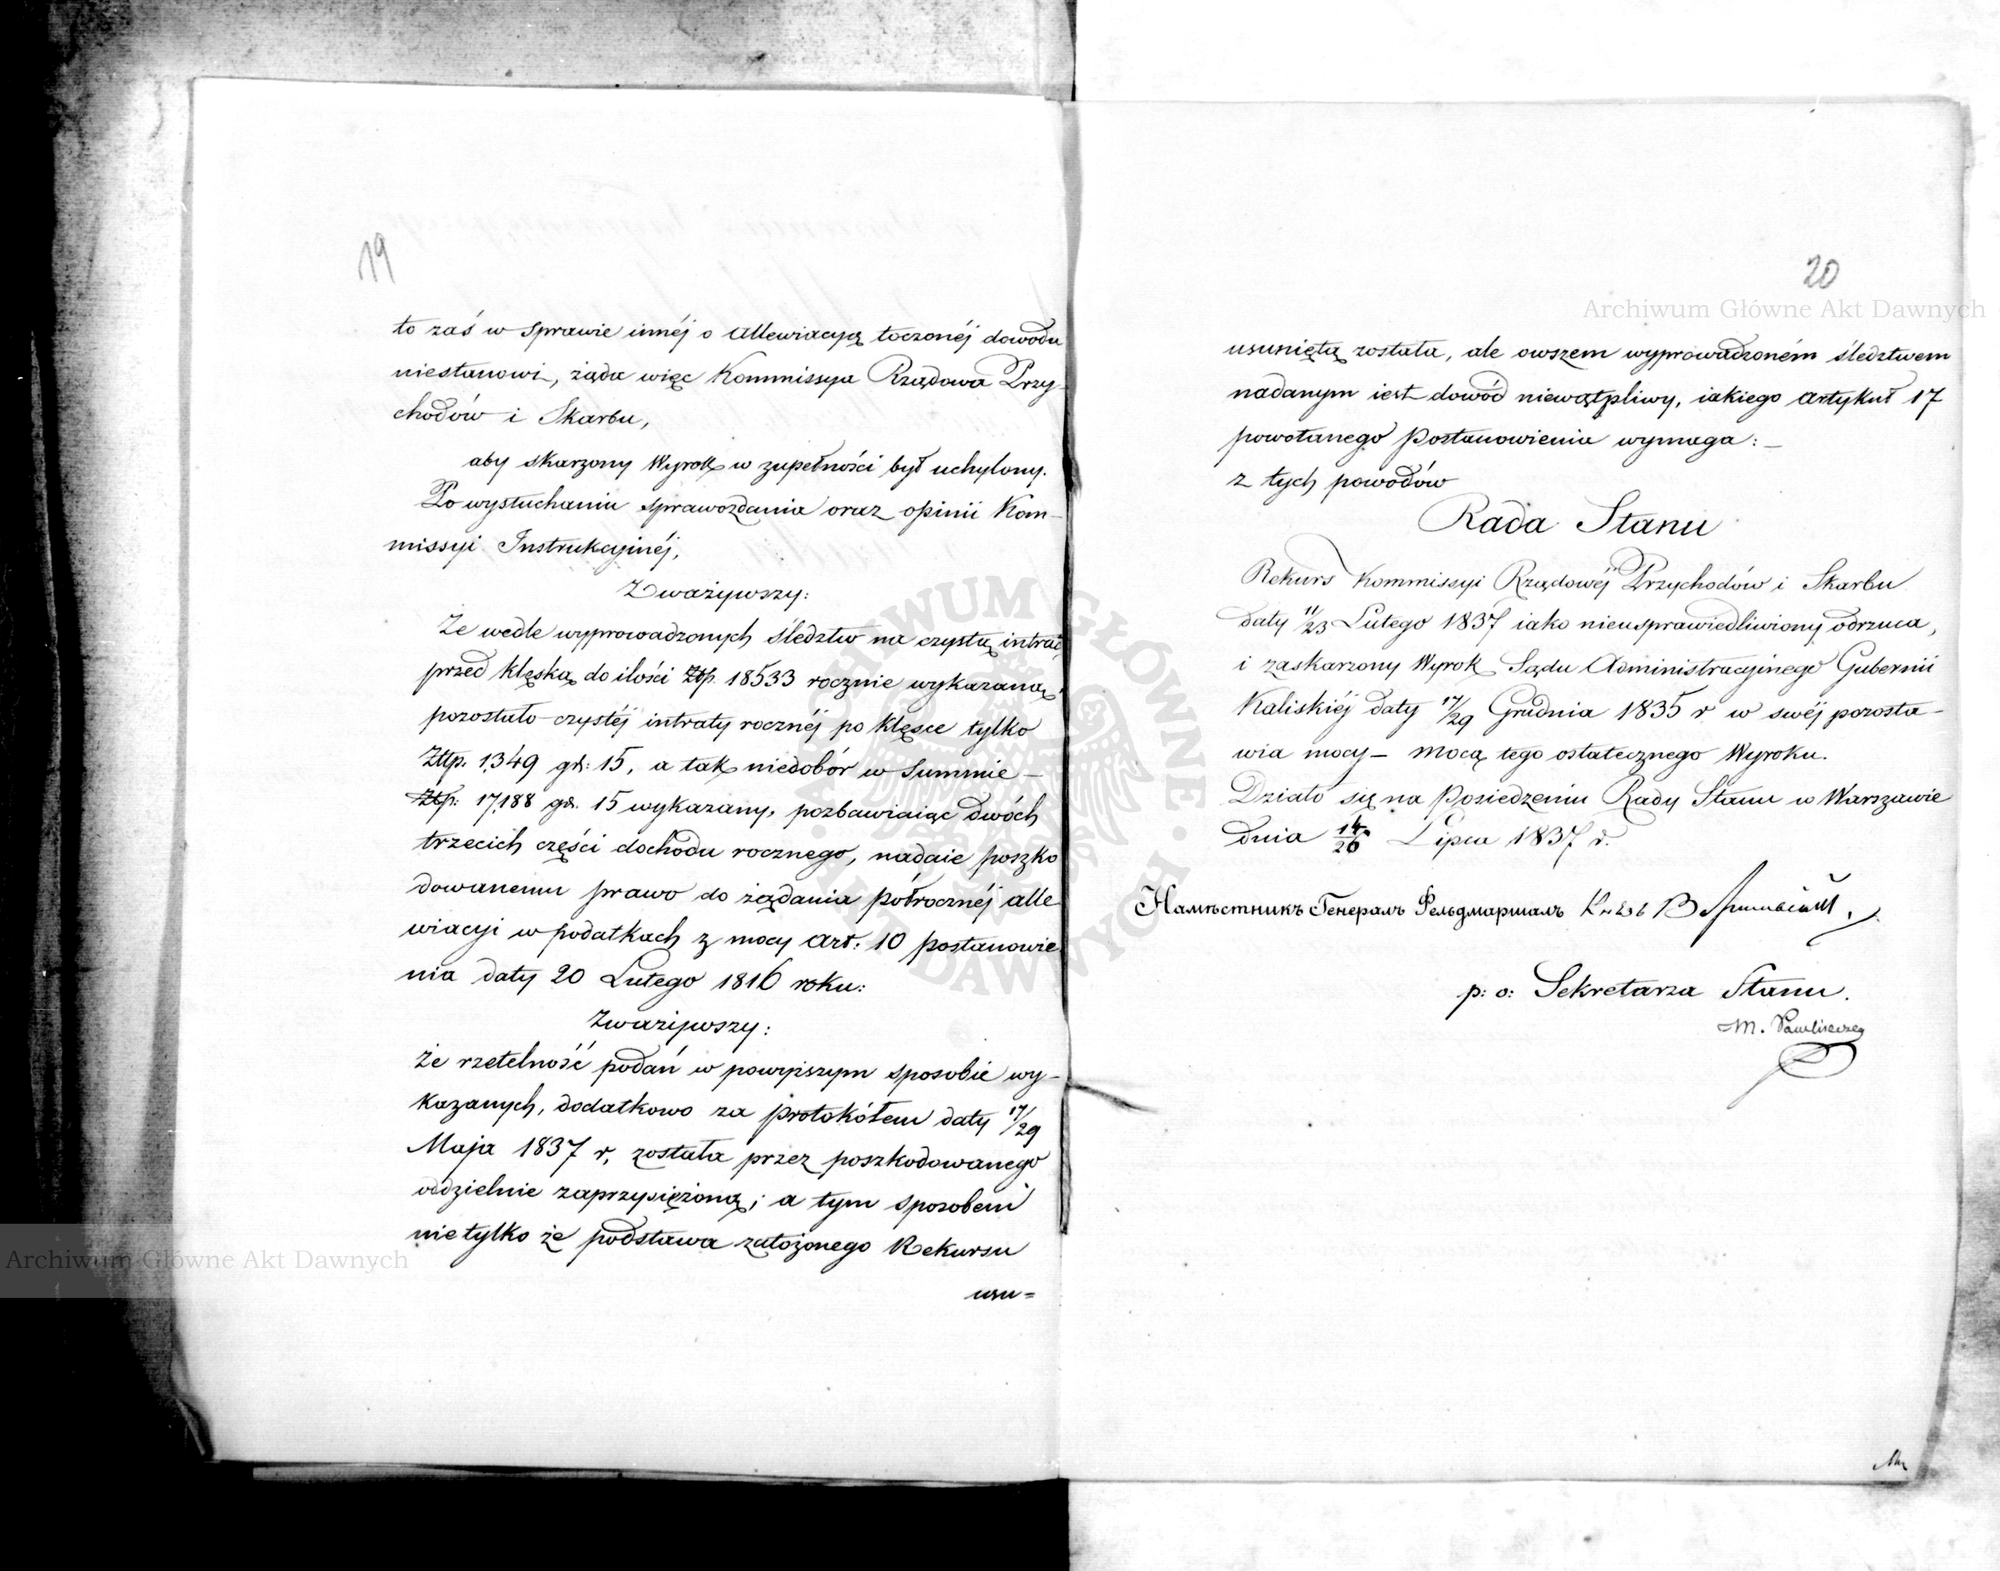 19
to zaś w sprawie innéj o allewiacyą toczonéj dowodu
niestanowi, żąda więc Kommissya Rządowa Przy-
chodów i Skarbu,
aby skarzony Wyrok w zupełności był uchylony.
Po wysłuchaniu sprawozdania oraz opinii Kom-
missyi Instrukcyinéj,
Zważywszy:
Że wedle wyprowadzonych śledztw na czystą intratę
przed klęską do ilości Ztp. 18533 rocznie wykazaną
pozostało czystéj intraty rocznéj po klęsce tylko
Ztp. 1,349 gr: 15, a tak niedobór w summie –
Ztp: 17,188 gr. 15 wykazany, pozbawiaiąc dwóch
trzecich części dochodu rocznego, nadaie poszko
dowanemu prawo do żądania półrocznéj alle
wiacyi w podatkach z mocy art: 10 postanowie
nia daty 20 Lutego 1816 roku:
Zważywszy:
Że rzetelność podań w powyższym sposobie wy-
kazanych, dodatkowo za protokółem daty 17/29
Maja 1837 r, została przez poszkodowanego
oddzielnie zaprzysiężoną; a tym sposobem
nietylko że podstawa założonego Rekursu
usu=
20
usuniętą została, ale owszem wyprowadzoném śledztwem
nadanym iest dowód niewątpliwy, iakiego artykuł 17
powołanego Postanowienia wymaga: –
z tych powodów
Rada Stanu
Rekurs Kommissyi Rządowéj Przychodów i Skarbu
daty 11/23 Lutego 1837 iako nieusprawiedliwiony odrzuca,
i zaskarzony Wyrok Sądu Administracyinego Gubernii
Kaliskiéj daty 17/29 Grudnia 1835 r w swéj pozosta-
wia mocy – mocą tego ostatecznego Wyroku.
Działo się na Posiedzeniu Rady Stanu w Warszawie
dnia 14/26 Lipca 1837 r.
Намѣстникъ Генералъ Фельдмаршалъ
p: o: Sekretarza Stanu.
Archiwum Główne Akt Dawnych
Archiwum Główne Akt Dawnych
ARCHIWUM GŁÓWNE AKT DAWNYCH